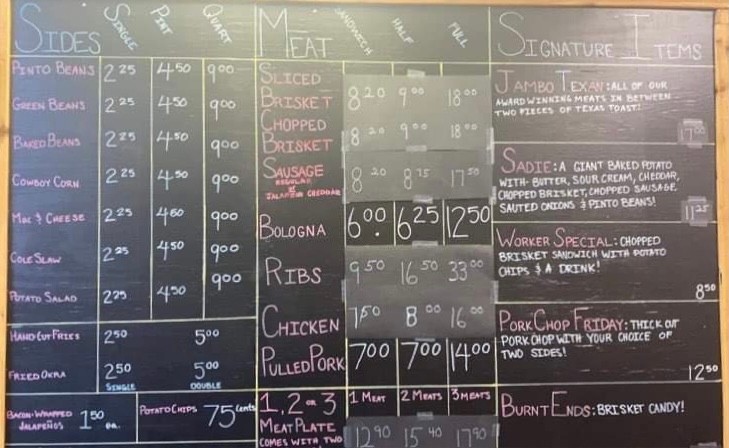 SIDES SINGLE PINT QUART
PINTO BEANS 2 25 4 50 9 00
GREEN BEANS 2 25 4 50 9 00
BAKED BEANS 2 25 4 50 9 00
COWBOY CORN 2 25 4 50 9 00
MAC & CHEESE 2 25 4 50 9 00
COLE SLAW 2 25 4 50 9 00
POTATO SALAD 2 25 4 50 9 00
HAND CUT FRIES 2 50 5 00
FRIED OKRA 2 50 5 00
SINGLE DOUBLE
BACON-WRAPPED
JALAPEÑOS 1 50 ea.
POTATO CHIPS 75 cents
MEAT SANDWICH HALF FULL
SLICED
BRISKET 8 20 9 00 18 00
CHOPPED
BRISKET 8 20 9 00 18 00
SAUSAGE 8 20 8 75 17 50
REGULAR
or
JALAPENO CHEDDAR
BOLOGNA 6 00 6 25 12 50
RIBS 9 50 16 50 33 00
CHICKEN 7 50 8 00 16 00
PULLED PORK 7 00 7 00 14 00
1, 2 or 3 1 MEAT 2 MEATS 3 MEATS
MEAT PLATE 12 90 15 40 17 90
COMES WITH TWO
SIGNATURE ITEMS
JAMBO TEXAN: ALL OF OUR
AWARD WINNING MEATS IN BETWEEN
TWO PIECES OF TEXAS TOAST!
17 00
SADIE: A GIANT BAKED POTATO
WITH- BUTTER, SOUR CREAM, CHEDDAR,
CHOPPED BRISKET, CHOPPED SAUSAGE,
SAUTED ONIONS & PINTO BEANS!
11 25
WORKER SPECIAL: CHOPPED
BRISKET SANDWICH WITH POTATO
CHIPS & A DRINK!
8 50
PORK CHOP FRIDAY: THICK CUT
PORK CHOP WITH YOUR CHOICE OF
TWO SIDES!
12 50
BURNT ENDS: BRISKET CANDY!